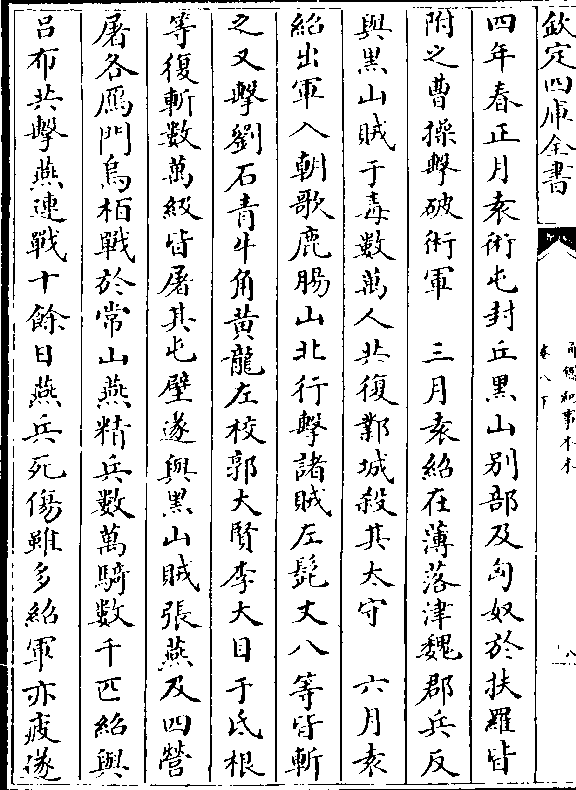 欽定四庫全書
四年春正月袁術屯封丘黑山别部及匈奴於扶羅皆
附之曹操擊破術軍　三月袁紹在薄落津魏郡兵反
與黑山賊于毒數萬人共復鄴城殺其太守　六月袁
紹出軍入朝歌鹿腸山北行擊諸賊左髭丈八等皆斬
之又擊劉石青牛角黄龍左校郭大賢李大目于氐根
等復斬數萬級皆屠其屯壁遂與黑山賊張燕及四營
屠各雁門烏桓戰於常山燕精兵數萬騎數千匹紹與
吕布共擊燕連戰十餘日燕兵死傷雖多紹軍亦疲遂